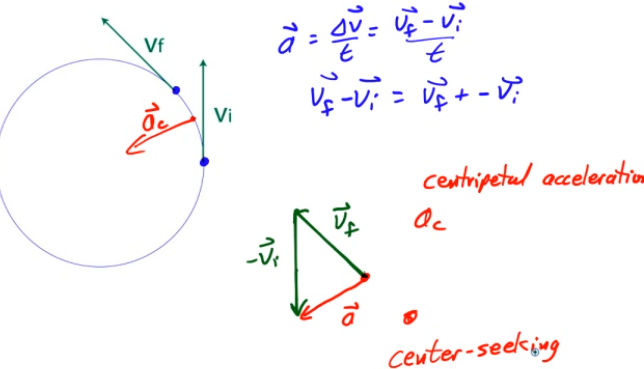 Vf
Vi
a⃗c
a⃗ = Δv⃗/t = (v⃗f - v⃗i)/t
v⃗f - v⃗i = v⃗f + - v⃗i
centripetal acceleration
ac
v⃗f
-v⃗i
a⃗
center-seeking